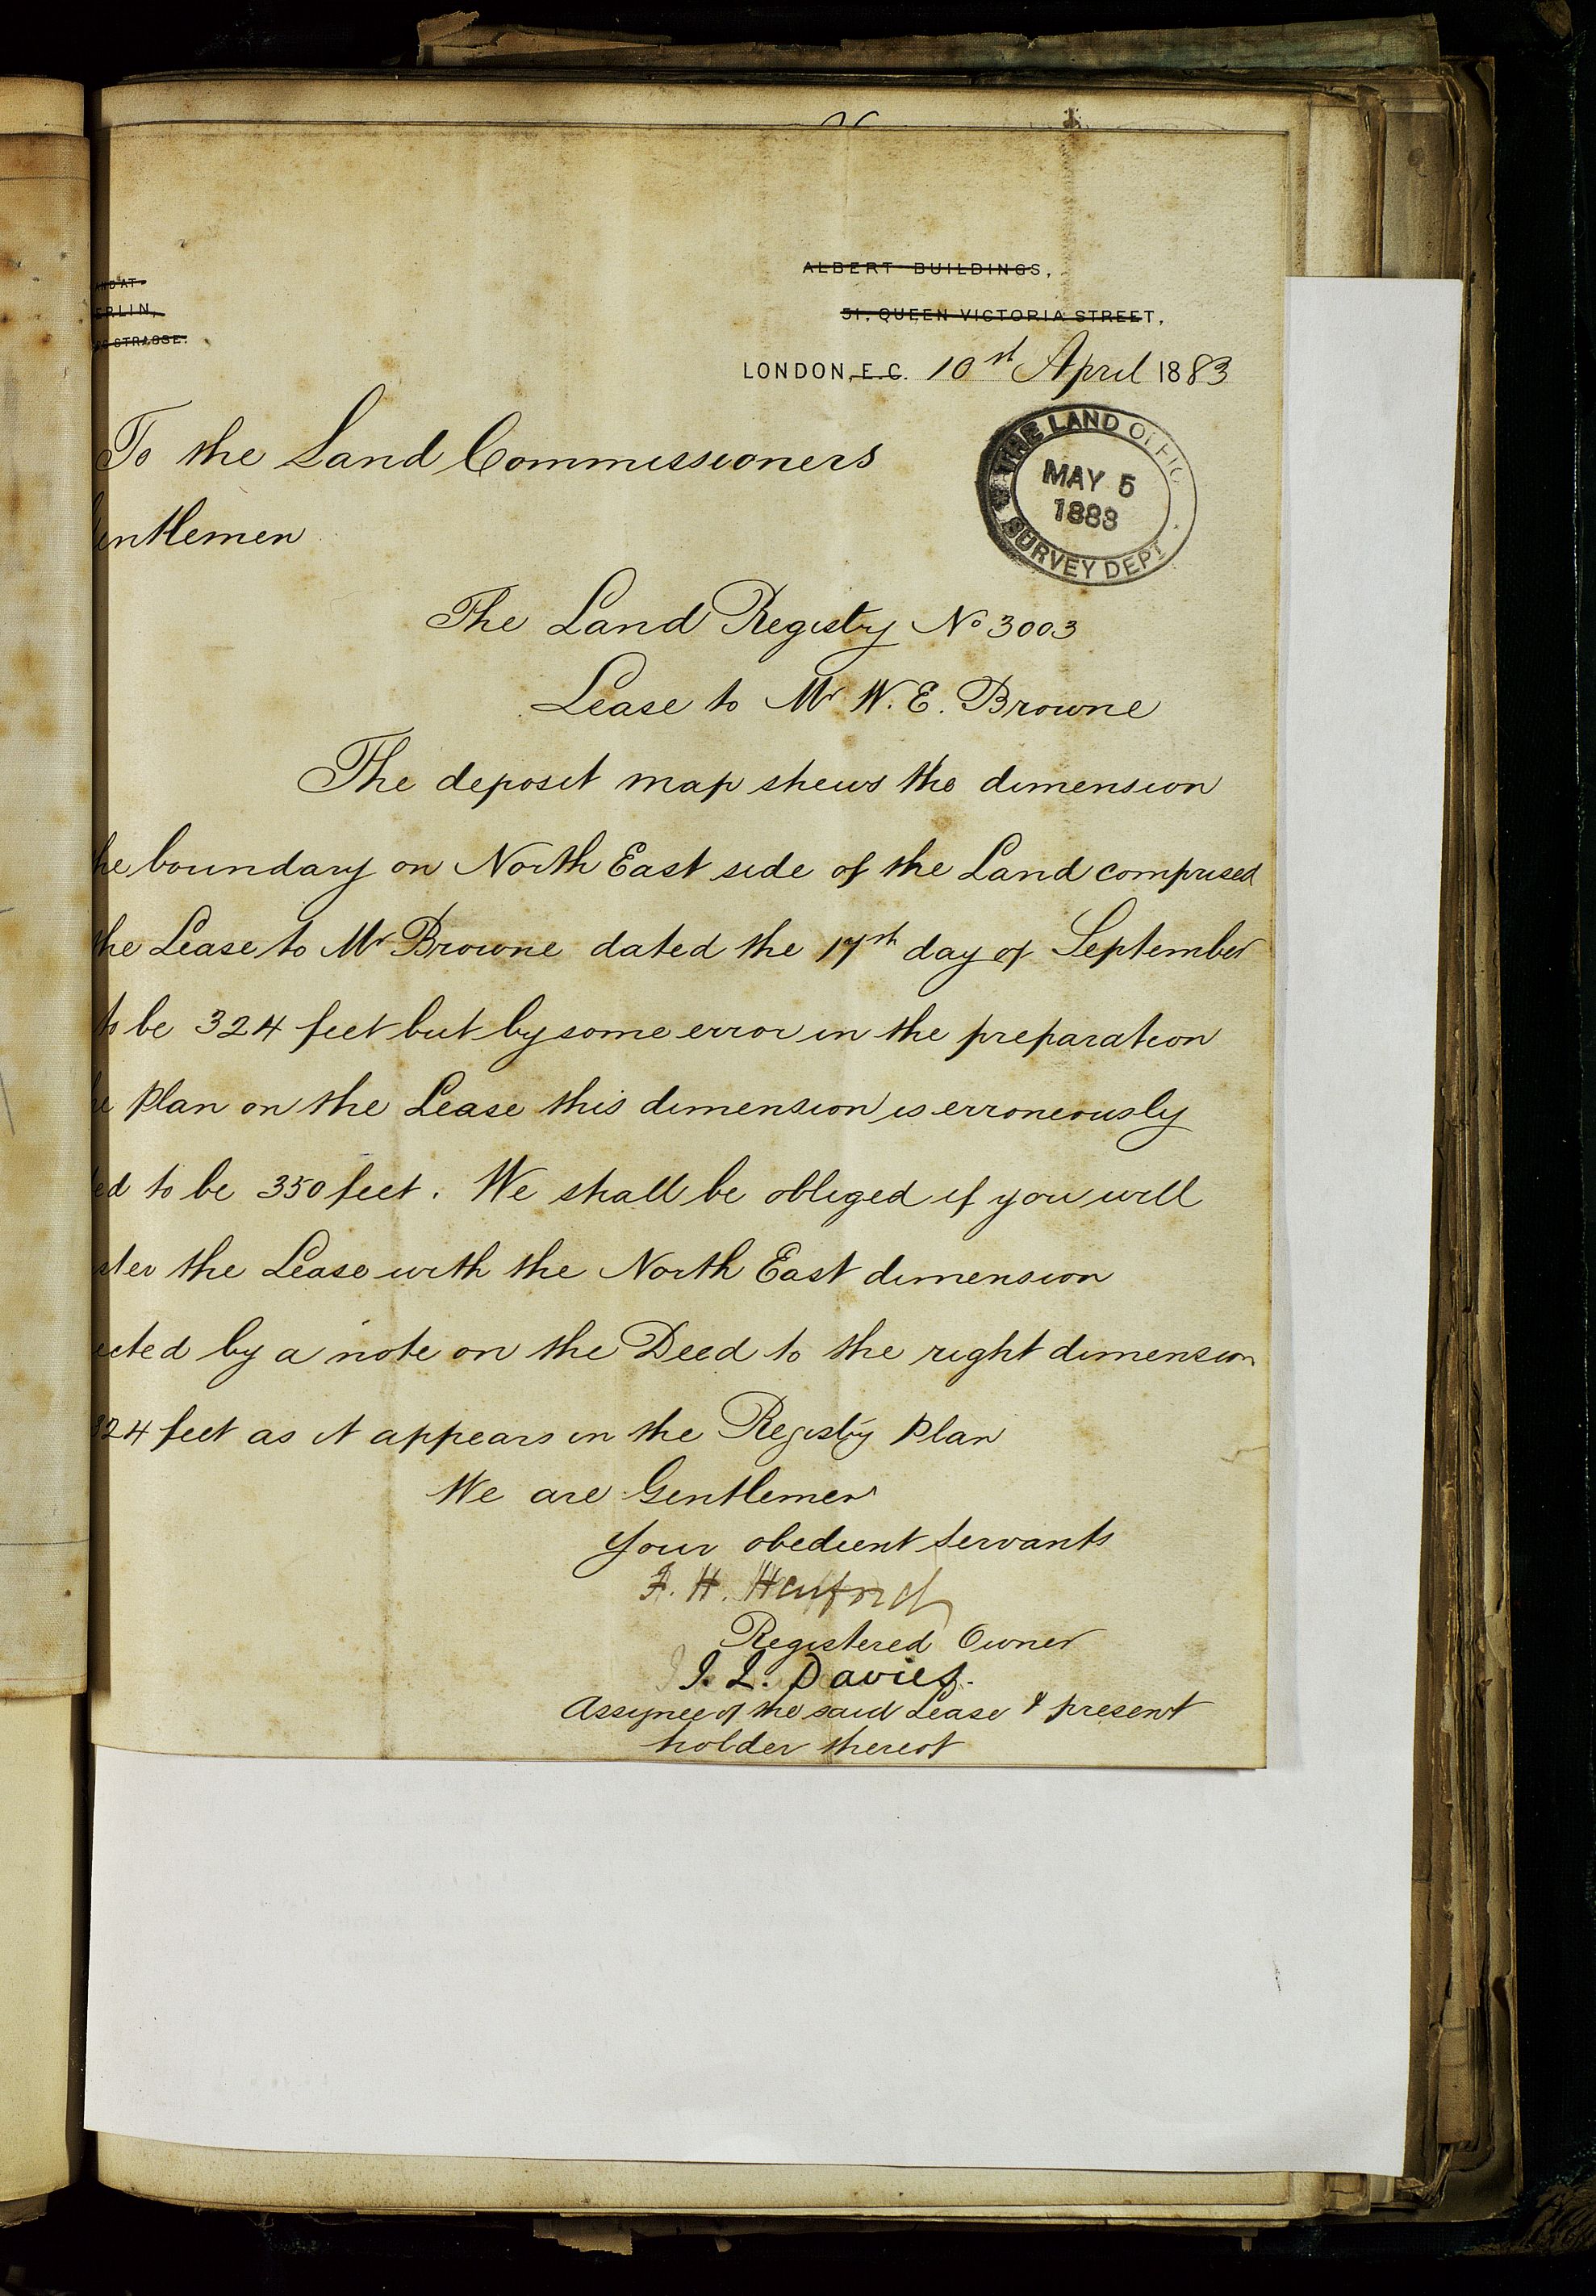 AND AT
ERLIN,
STRASSE.
ALBERT BUILDINGS,
51, QUEEN VICTORIA STREET,
LONDON, E.C. 10st April 1883
THE LAND OFFIC
MAY 5
1883
SURVEY DEPT
To the Land Commissioners
entlemen
The Land Registry No 3003
Lease to Mr W. E. Browne
The deposit map shews the dimension
he boundary on North East side of the Land comprised
the Lease to Mr Browne dated the 17th day of September
to be 324 feet but by some error in the preparation
he Plan on the Lease this dimension is erroneously
ed to be 350 feet. We shall be obliged if you will
ster the Lease with the North East dimension
ected by a note on the Deed to the right dimension
324 feet as it appears in the Registry Plan
We are Gentlemen
Your obedient servants
F. H.
Registered Owner
J. L. Davies.
Assignee of the said Lease & present
holder thereof